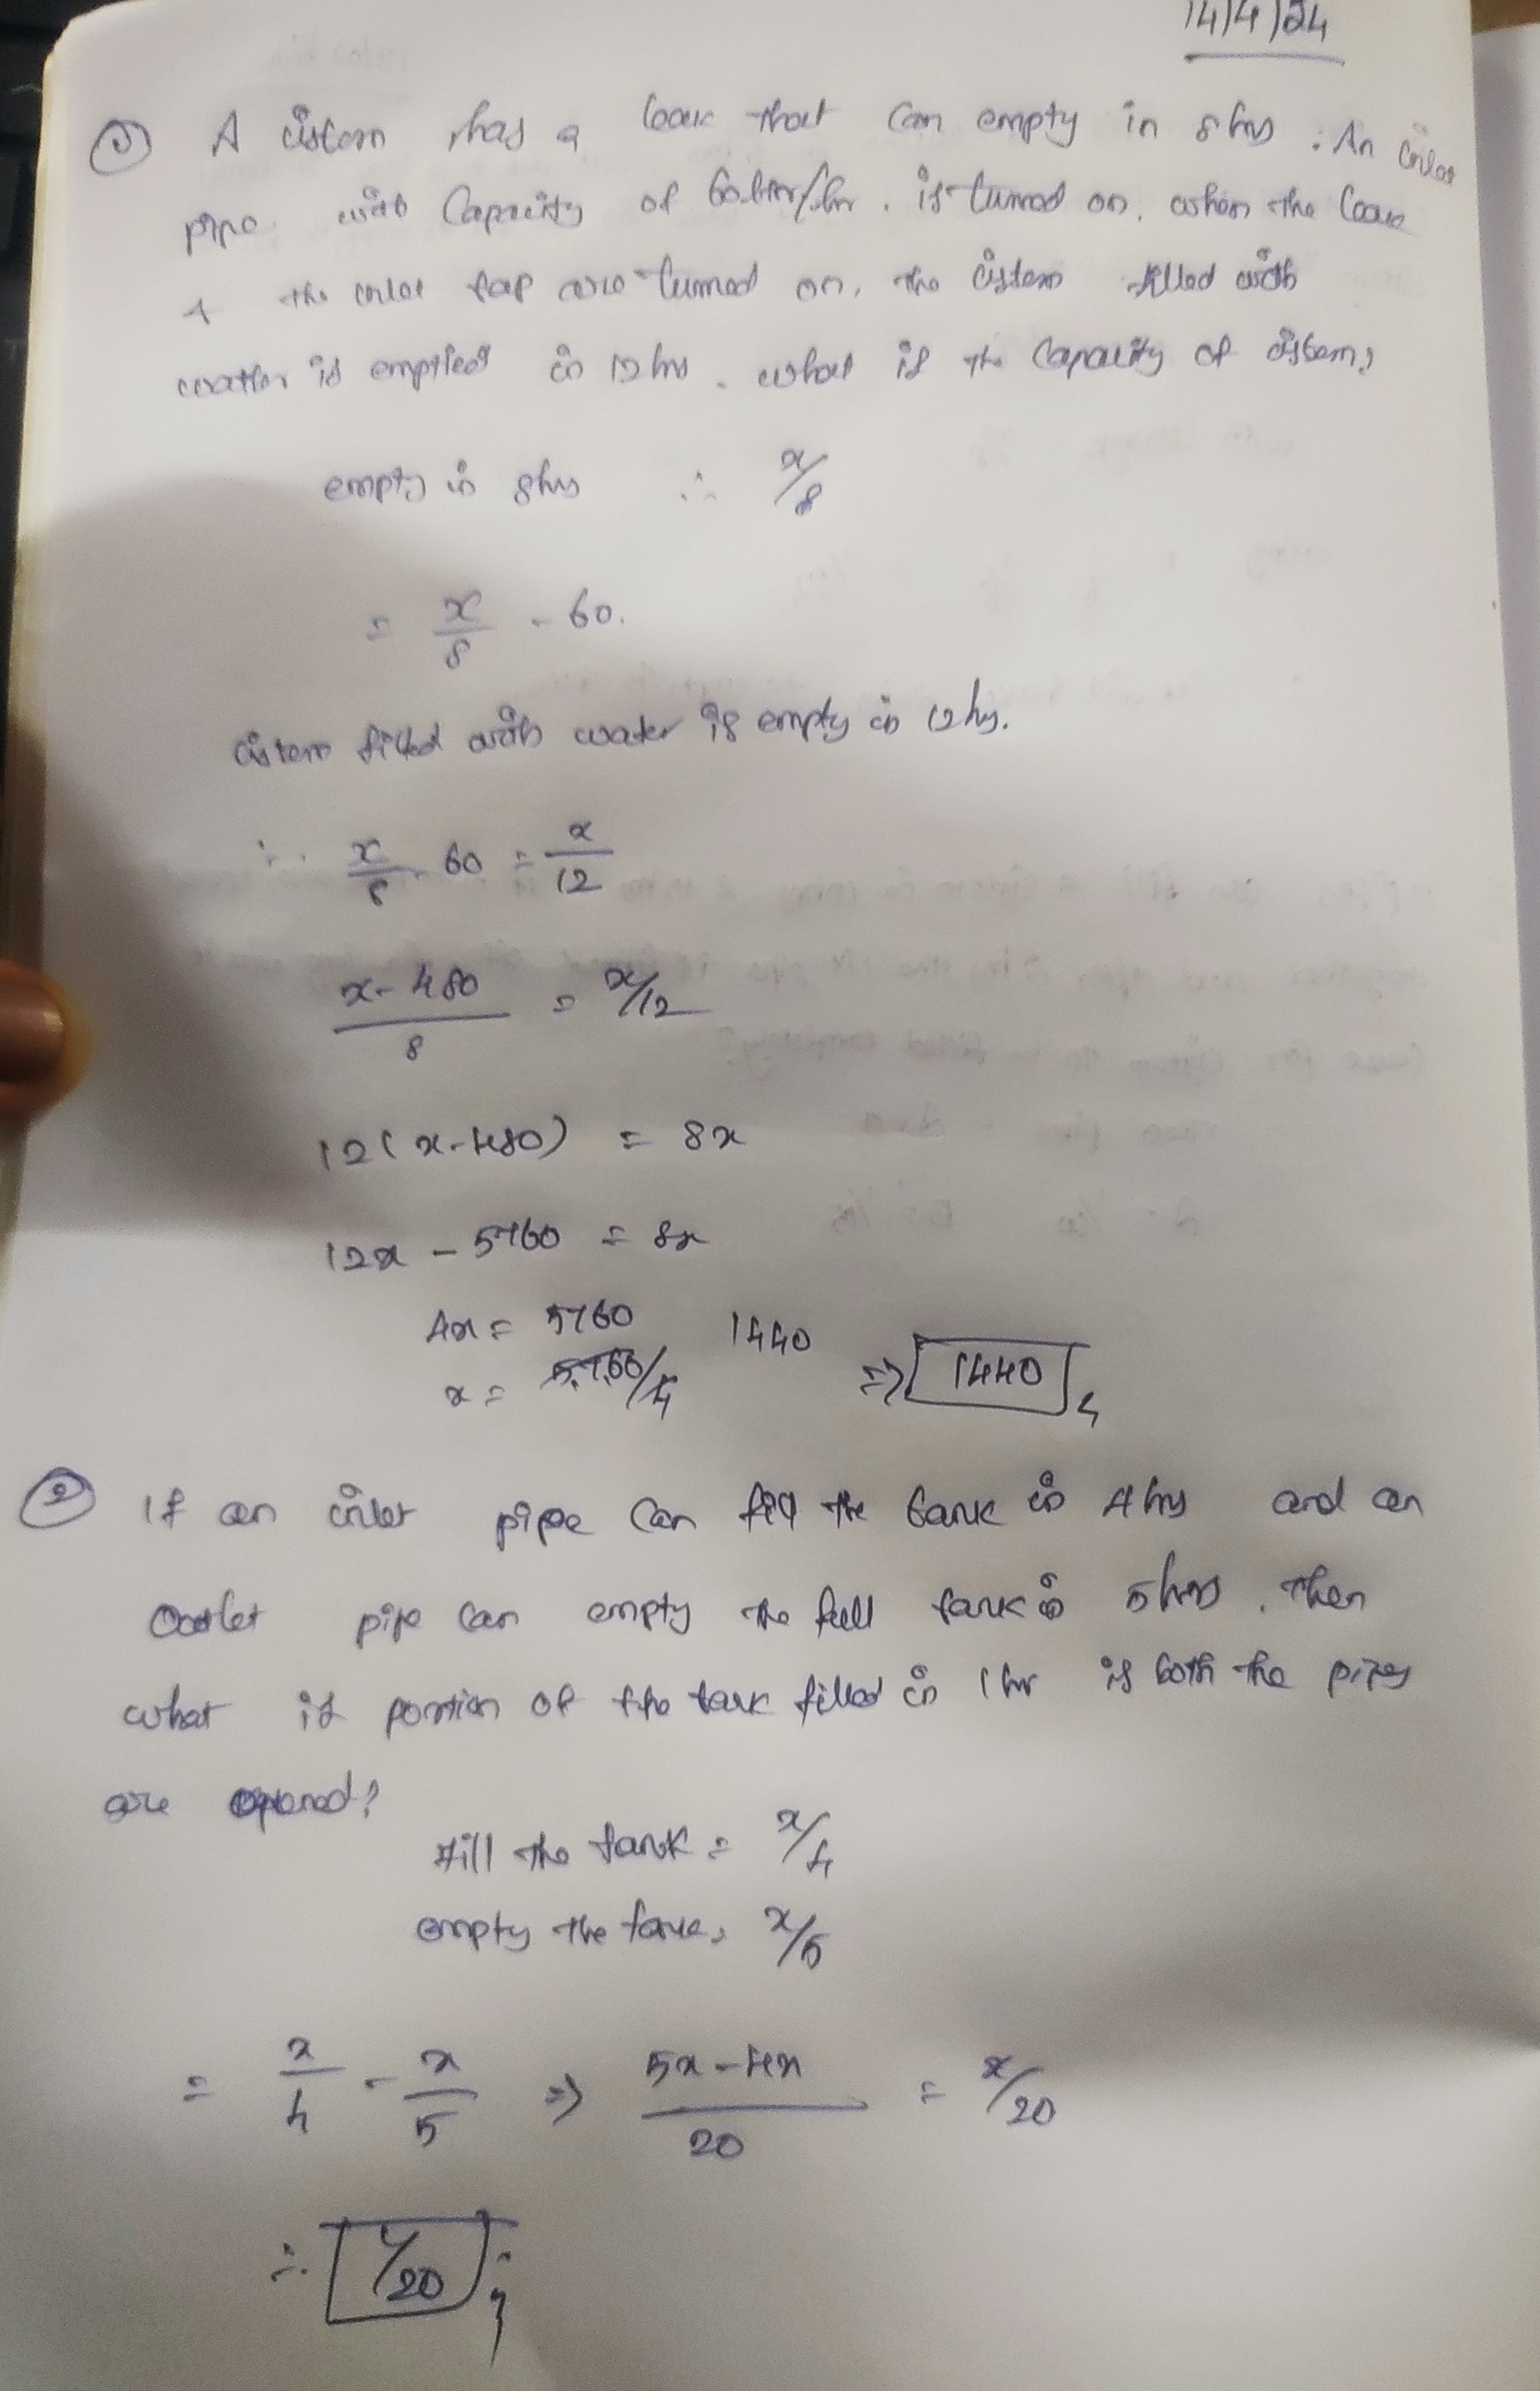 14/4/24
① A cistern has a leak that can empty in 8 hrs. An inlet
pipe with capacity of 60 liter/hr. is turned on. when the leak
& the inlet tap are turned on, the cistern filled with
water is emptied in 12 hrs. what is the capacity of cistern?
empty in 8hrs ∴ x/8
= x/8 - 60.
cistern filled with water is empty in 12 hrs.
∴ x/8 - 60 = x/12
x-480/8 = x/12
12(x-480) = 8x
12x - 5760 = 8x
4x = 5760
x = 5760/4 1440 => 1440
② If an inlet pipe can fill the tank in 4hrs and an
outlet pipe can empty the full tank in 5hrs. Then
what is portion of the tank filled in 1hr is both the pipes
are opened?
Fill the tank = x/4
empty the tank = x/5
= x/4 - x/5 => 5x-4x/20 = x/20
∴ 1/20